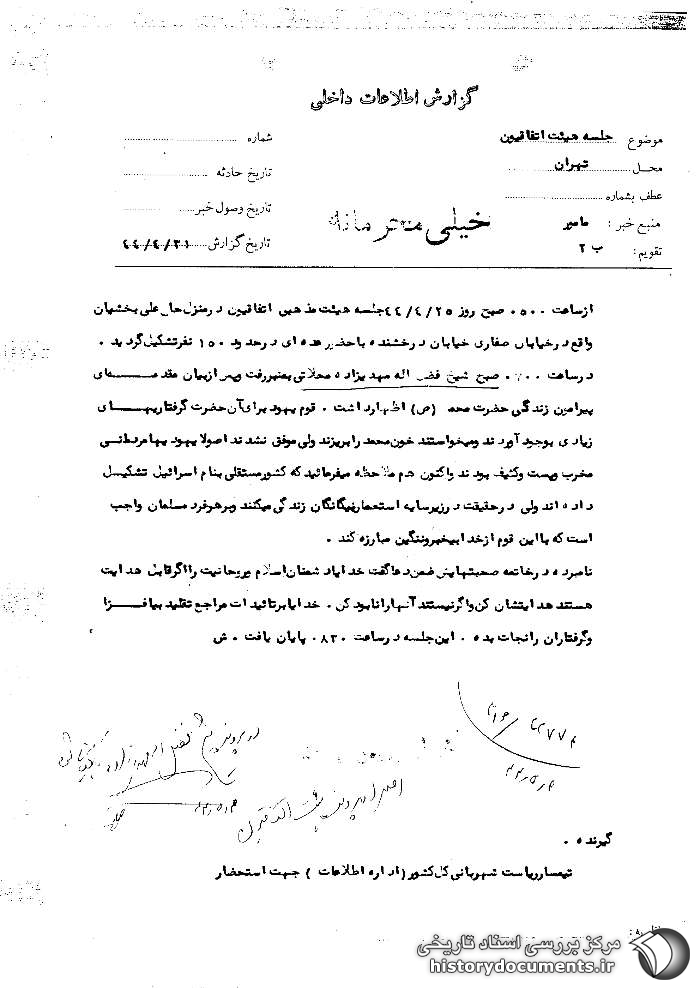 گزارش اطلاعات داخلی
موضوع جلسه هیئت اتفاقیون
شماره
محـل تهران
تاریخ حادثه
عطف بشماره
تاریخ وصول خبر
منبع خبر : مامور
خیلی محترمانه
تقویم: ب ۲
تاریخ گزارش ۴۴/۴/۳۱
ازساعت ۰۵۰۰ صبح روز ۴۴/۴/۲۵ جلسه هیئت مذهبی اتفاقیون درمنزل حاج علی بخشیان
واقع درخیابان صفاری خیابان درخشنده باحضور عده ای درحدود ۱۵۰ نفرتشکیل گردید .
درساعت ۰۷۰۰ صبح شیخ فضل اله مهدیزاده محلاتی بمنبررفت وپس ازبیان مقدمـــه‌ای
پیرامون زندگی حضرت محمد (ص) اظهارداشت . قوم یهود برای آن حضرت گرفتاریهـــای
زیادی بوجود آوردند ومیخواستند خون محمد رابریزند ولی موفق نشدند اصولا یهود یها مردمانی
مخرب وپست وکثیف بودند واکنون هم ملاحظه میفرمائید که کشورمستقلی بنام اسرائیل تشکیـل
داده اند ولی درحقیقت درزیرسایه استعماربیگانگان زندگی میکنند وبرهرفرد مسلمان واجب
است که بااین قوم ازخدابیخبروننگین مبارزه کند .
نامبرده درخاتمه صحبتهایش ضمن دعاگفت خدایادشمنان اسلام وروحانیت رااگرقابل هدایت
هستند هدایتشان کن واگرنیستند آنهارانابودکن . خدایابرتائیدات مراجع تقلید بیافـــزا
وگرفتاران رانجات بده . این جلسه درساعت ۰۸۳۰ پایان یافت . ش
۴۴/۵/۴
گیرنده .
تیمسارریاست شهربانی کل کشور (اداره اطلاعات ) جهت استحضار
مرکز بررسی اسناد تاریخی
historydocuments.ir